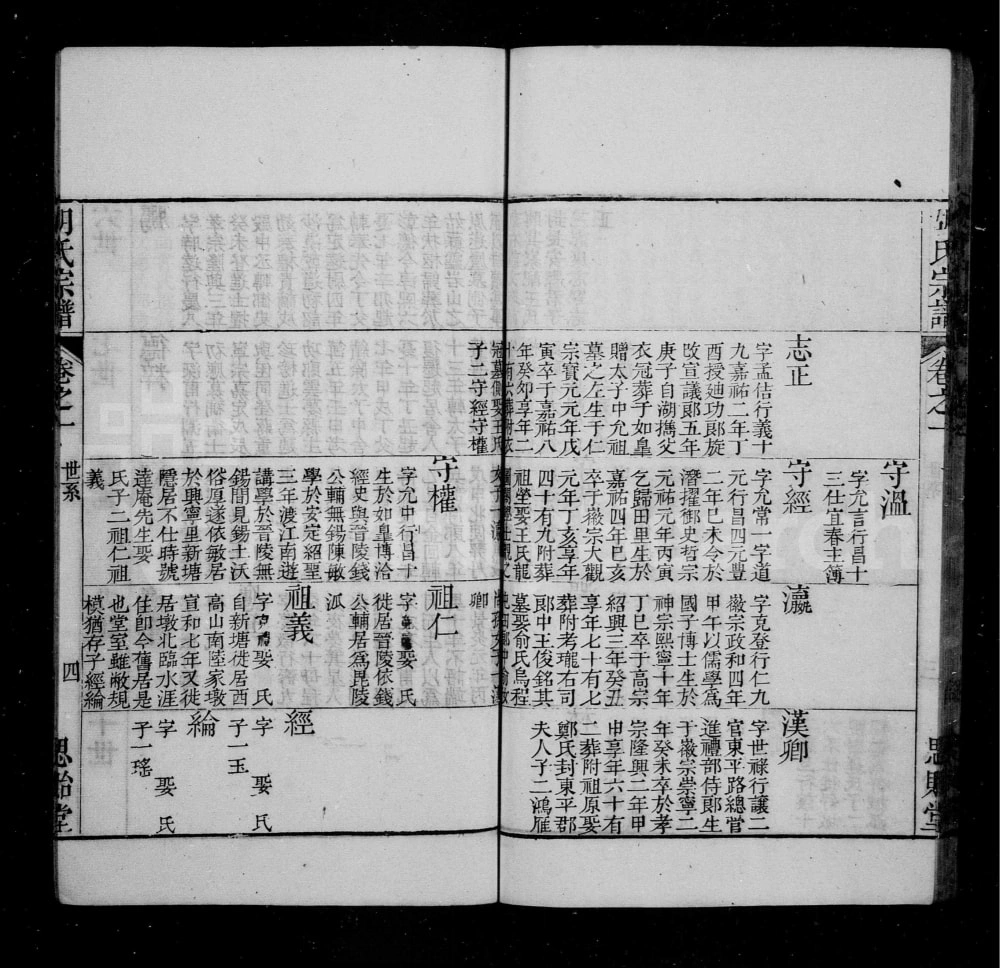 胡氏宗譜
卷之一
思貽堂
志正
字孟佶行義十
九嘉祐二年丁
酉授廸功郎旋
改宣議郎五年
庚子自湖擕父
衣冠葬子如皐
贈太子中允祖
墓之左生于仁
宗寳元元年戊
寅卒于嘉祐八
年癸夘享年二
十有六葬附衣
冠墓側娶王氏
子二守經守權
守溫
字允言行昌十
三仕宜春主簿
守經
字允常一字道
元行昌四元豐
二年己未今於
濳擢御史哲宗
元祐元年丙寅
乞歸田里生於
嘉祐四年己亥
卒于徽宗大觀
元年丁亥享年
四十有九附葬
祖坐娶王氏龍
圖閣學士觀之
女子一瀛
守權
字允中行昌十
生於如皐博洽
經史與晉陵錢
公輔無錫陳敏
學於安定紹聖
三年渡江南遊
講學於晉陵無
錫間見錫土沃
俗厚遂依敏居
於興寧里新塘
隱居不仕時號
達庵先生娶
氏子二祖仁祖
義
瀛
字克登行仁九
徽宗政和四年
甲午以儒學為
國子博士生於
神宗熙寧十年
丁巳卒于高宗
紹興三年癸丑
享年七十有七
葬附考瓏右司
郎中王俊銘其
墓娶俞氏烏程
子一漢
卿
祖仁
字 娶 氏
徙居晉陵依錢
公輔居為毘陵
派
祖義
字 娶 氏
自新塘徙居西
高山南陸家墩
宣和七年又徙
居墩北臨水涯
住卽今舊居是
也堂室雖敞規
模猶存子經綸
漢卿
字世祿行護二
官東平路總管
進禮部侍郎生
于徽宗崇寧二
年癸未卒於孝
宗隆興二年甲
申享年六十有
二葬附祖原娶
鄭氏封東平郡
夫人子二鴻雁
經
字 娶 氏
子一玉
綸
字 娶 氏
子一瑤
胡氏宗譜
卷之一
世系
四
思貽堂